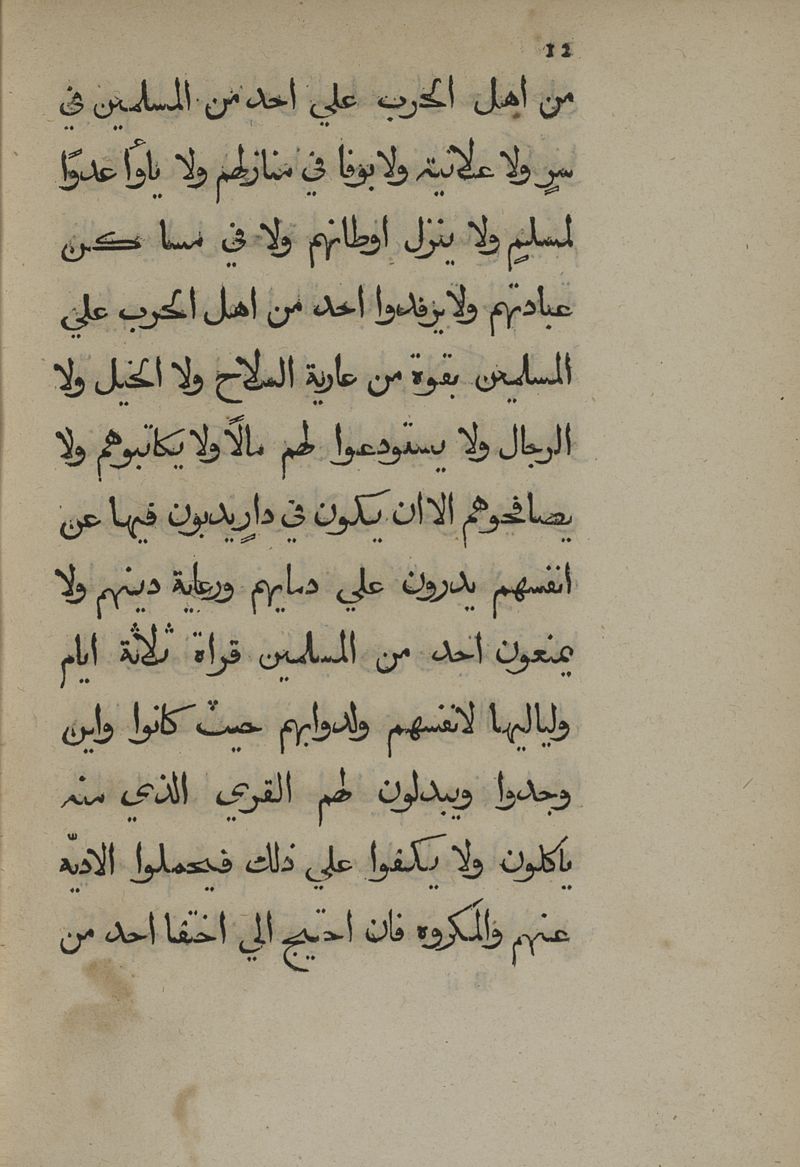 12
من اهل الحرب علي احد من المسلمين في
سرٍ ولا علانيته ولا يوفا في منازلهم ولا ياوٲا عدوًا
لمسلمٍ ولا ينزل اوطانهم ولا في مسا كن
عبادتهم ولا يرفدوا احد من اهل الحرب علي
المسلمين بقوة من عارية السلاح ولا الخيل ولا
الرجال ولا يستودعوا لهم مالًا ولا يكاتبوهم ولا
يصافحوهم الا ان يكون في دارٍ يدبون فيها عن
انفسهم يدرون علي دمايهم ورعاية دينهم ولا
يمنعون احد من المسلمين قراة ثلاثة ايام
ولياليها لانفسهم ولدوابهم حيث كانوا واين
وجدوا ويبدلون لهم القري الذي منه
ياكلون ولا يكلفوا علي ذلك فيحملوا الاديّه
عنهم والمكروه فان احتيج الي اختفا احد من